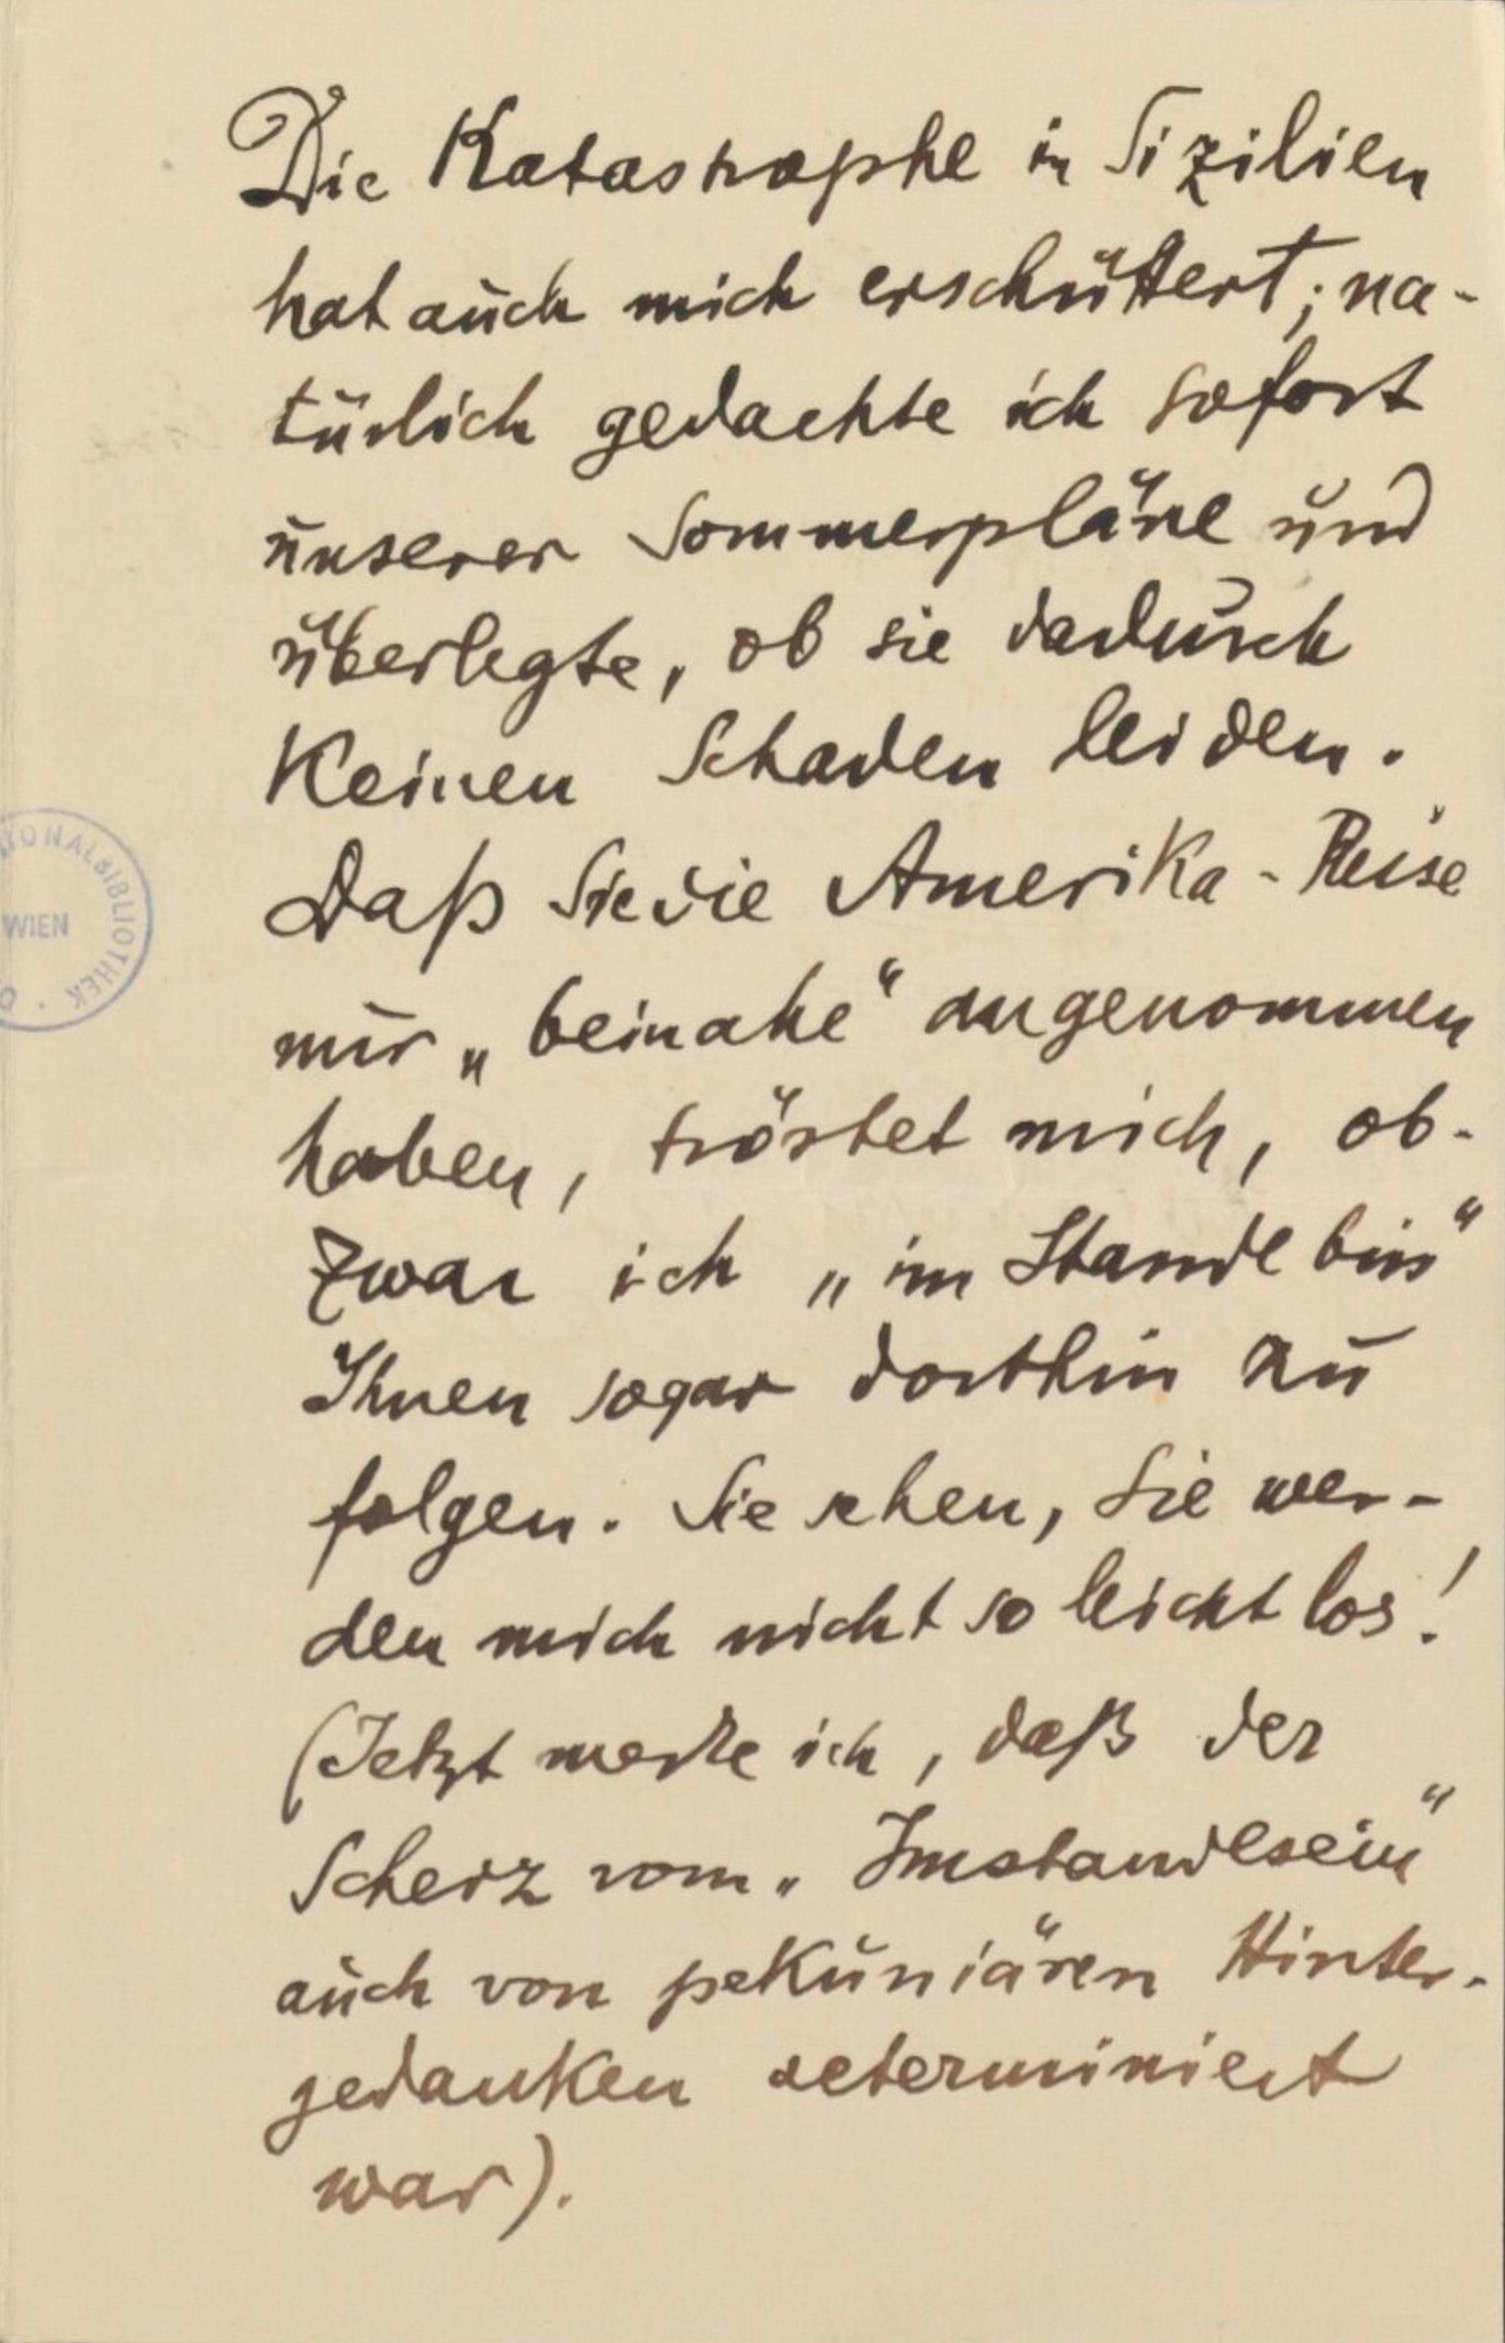 Die Katastrophe in Sizilien
hat auch mich erschüttert; na-
türlich gedachte ich sofort
unserer Sommerpläne und
überlegte, ob sie dadurch
keinen Schaden leiden.
Daß Sie die Amerika-Reise
nur „beinahe“ angenommen
haben, tröstet mich, ob-
zwar ich „im Stande bin“
Ihnen sogar dorthin zu
folgen. Sie sehen, Sie wer-
den mich nicht so leicht los!
(Jetzt merke ich, daß der
Scherz vom „Imstandesein“
auch von pekuniären Hinter-
gedanken determiniert
war).
IONALBIBLIOTHEK
WIEN